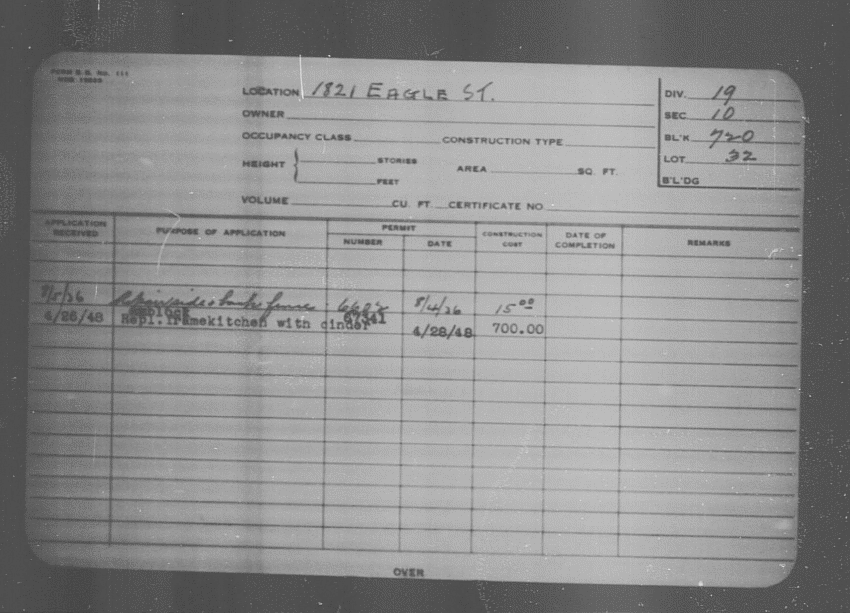 FORM B.B. No. 111
LOCATION 1821 EAGLE ST.
DIV. 19
OWNER
SEC 10
OCCUPANCY CLASS CONSTRUCTION TYPE
BL'K 720
HEIGHT { STORIES
FEET
AREA SQ. FT.
LOT 32
B'L'DG
VOLUME CU. FT. CERTIFICATE NO
APPLICATION RECEIVED PURPOSE OF APPLICATION PERMIT CONSTRUCTION COST DATE OF COMPLETION REMARKS
NUMBER DATE
8/5/26 Repair side & back fence 8/4/26 15 00
block
4/26/48 Repl. framekitchen with cinder 67341 4/28/48 700.00
OVER